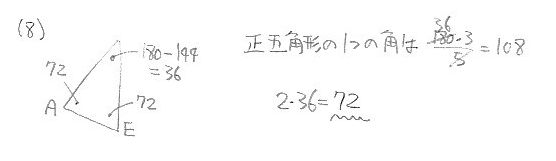 (8)
180-144
=36
72
72
A
E
正五角形の1つの角は 180・3/5 = 108
36
2・36=72